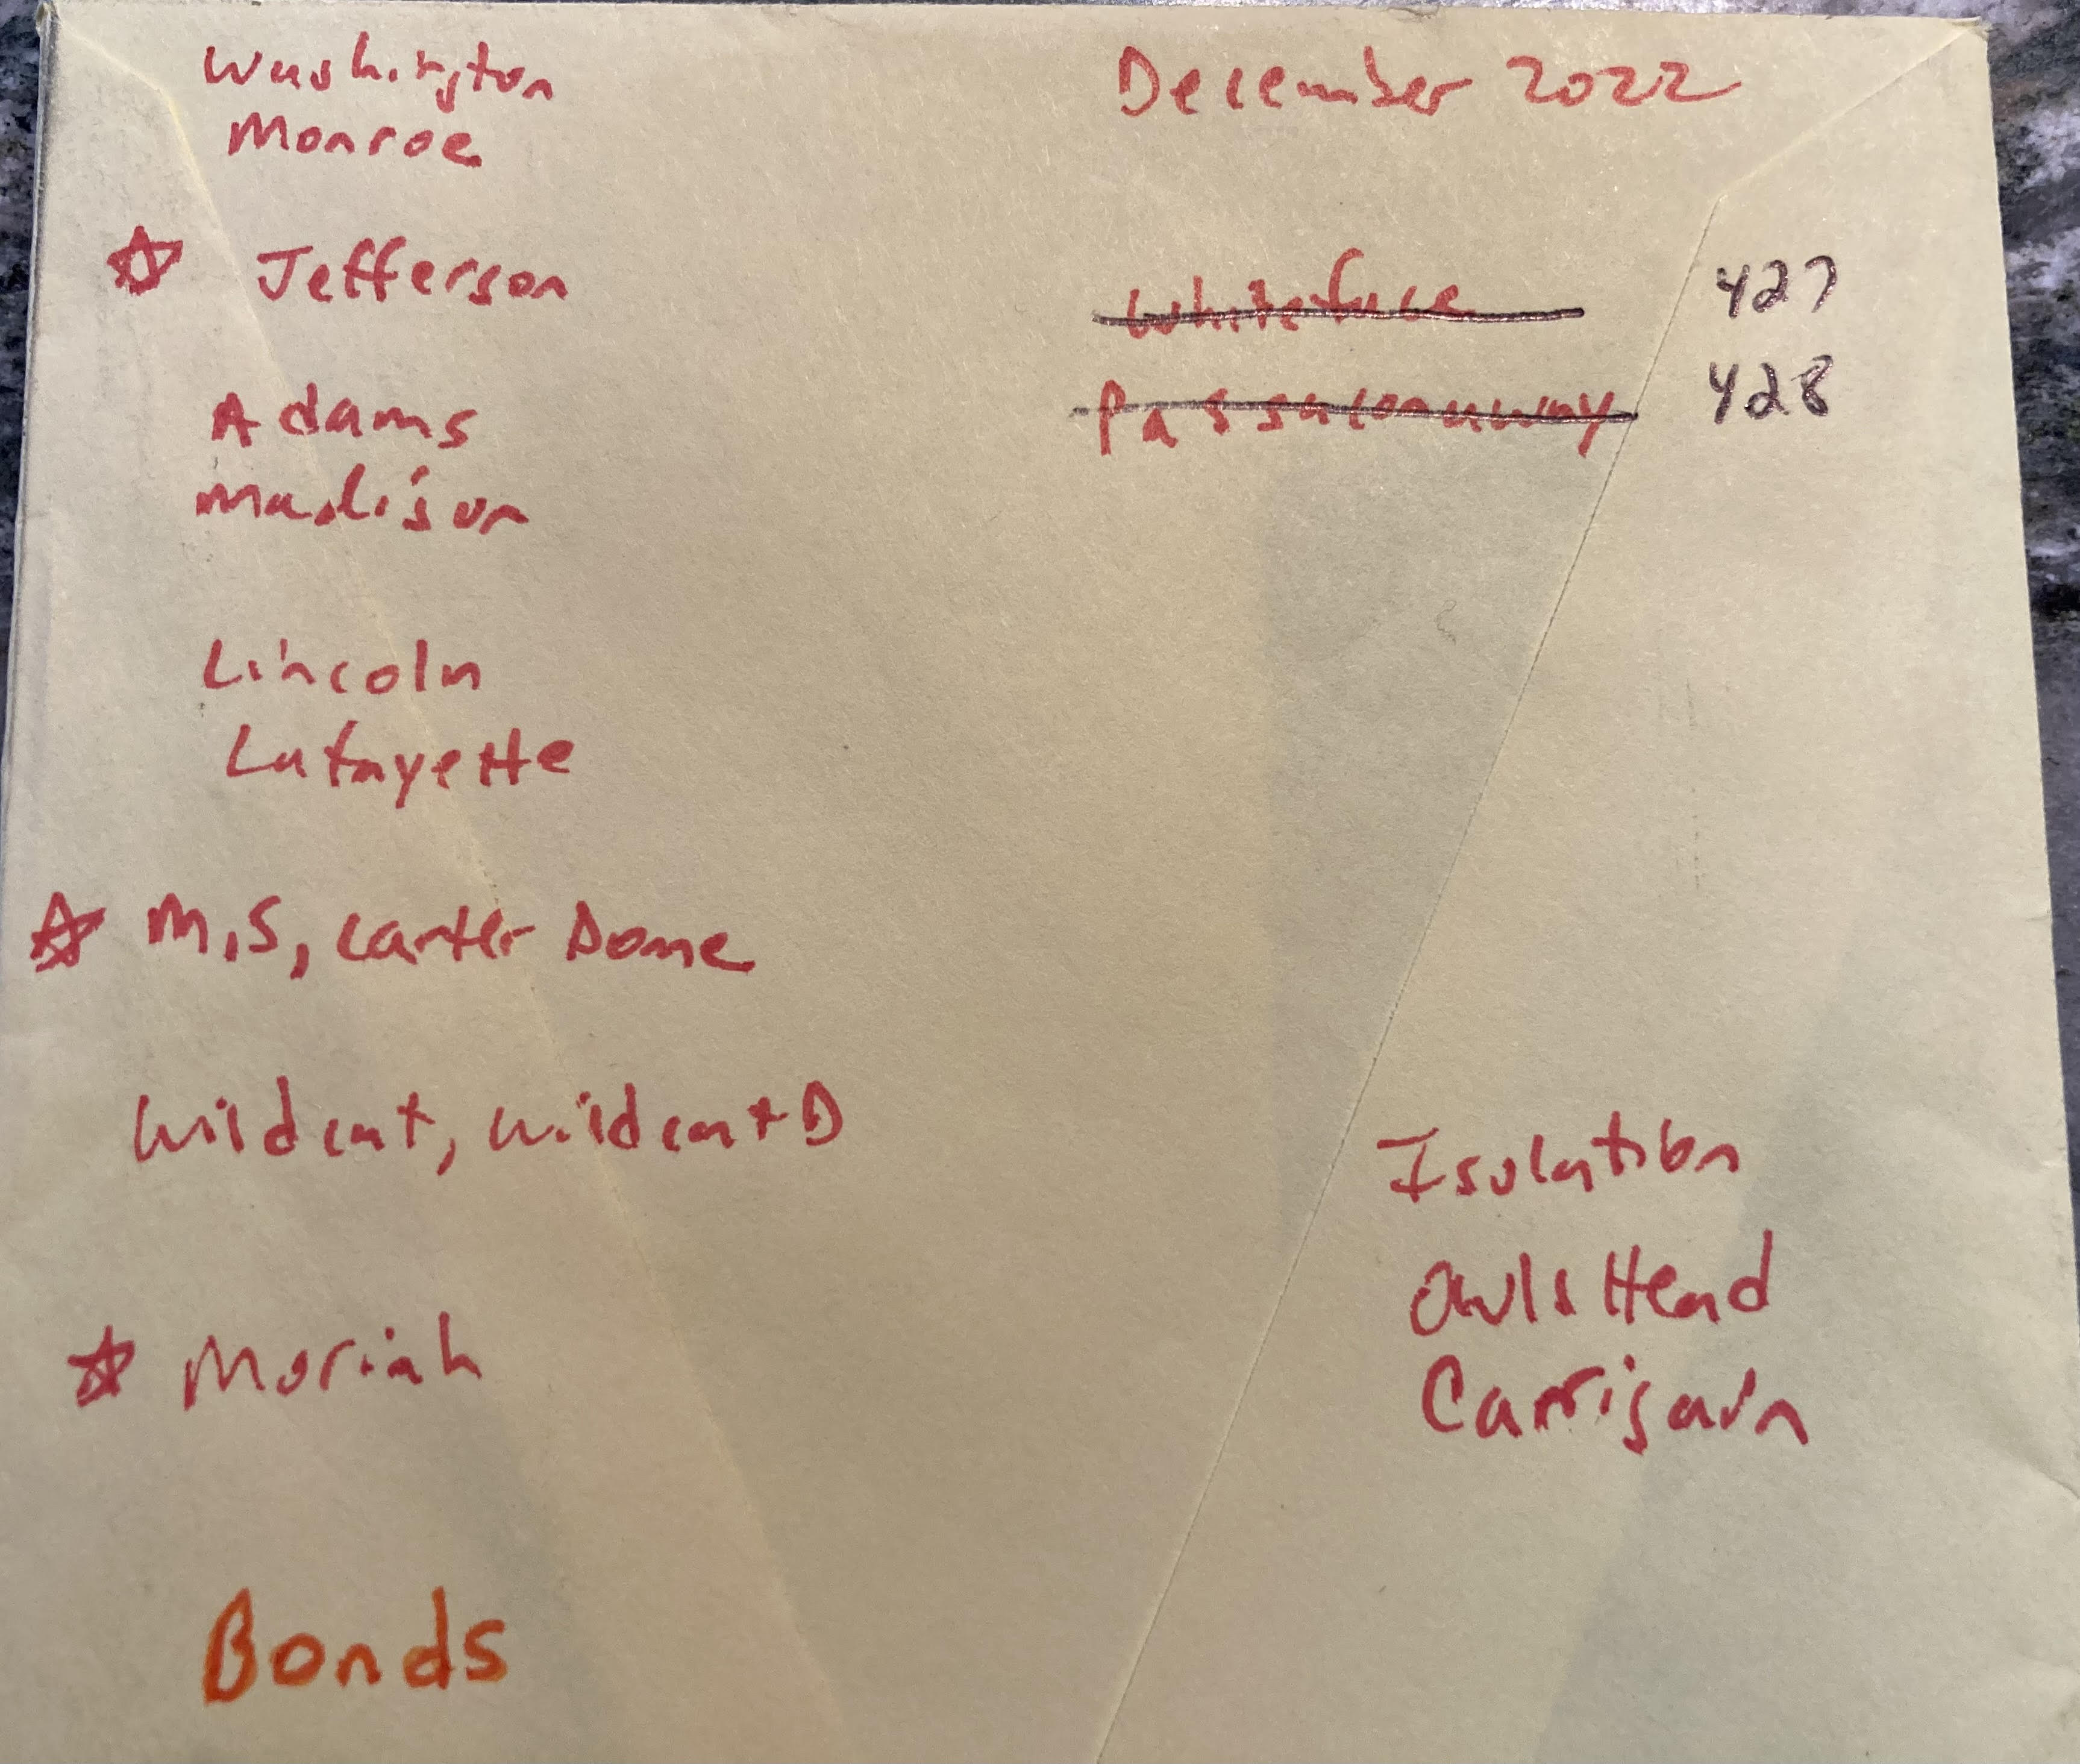 Washington
Monroe
☆ Jefferson
Adams
Madison
Lincoln
Lafayette
☆ M, S, Carter Dome
Wildcat, Wildcat D
☆ Moriah
Bonds
December 2022
Whiteface 427
Passaconaway 428
Isolation
Owls Head
Carrigain